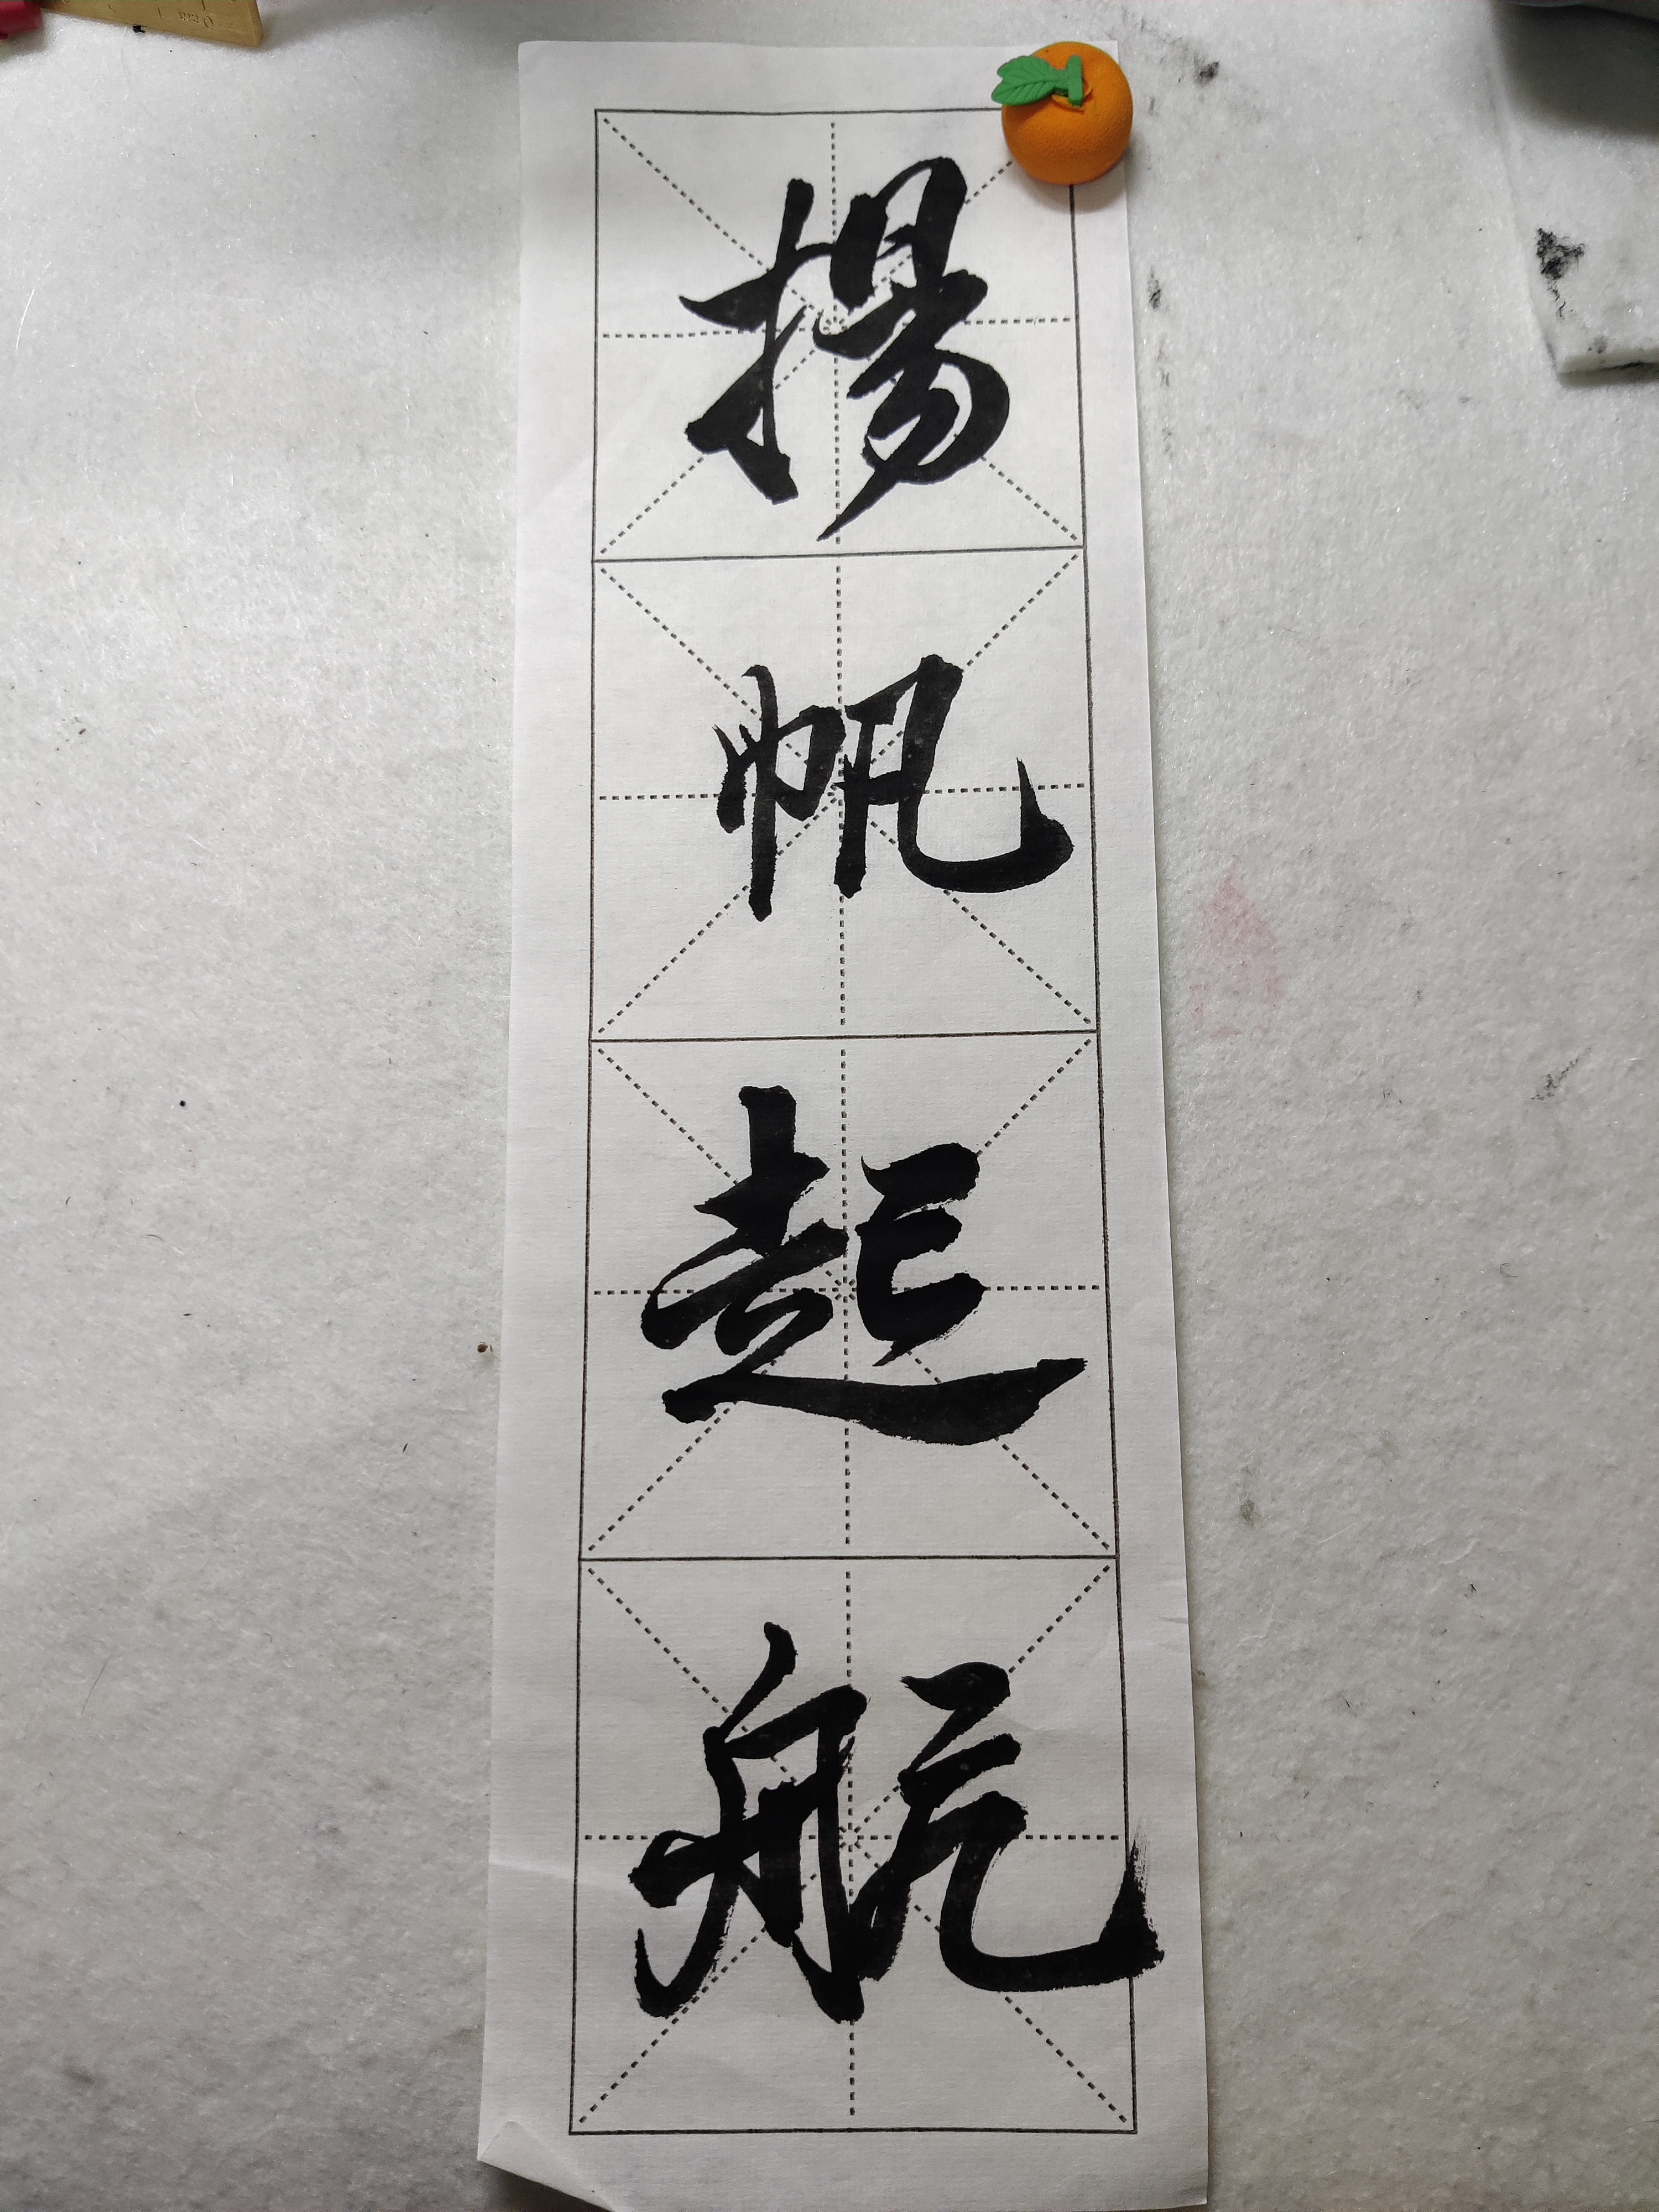 揚帆起航